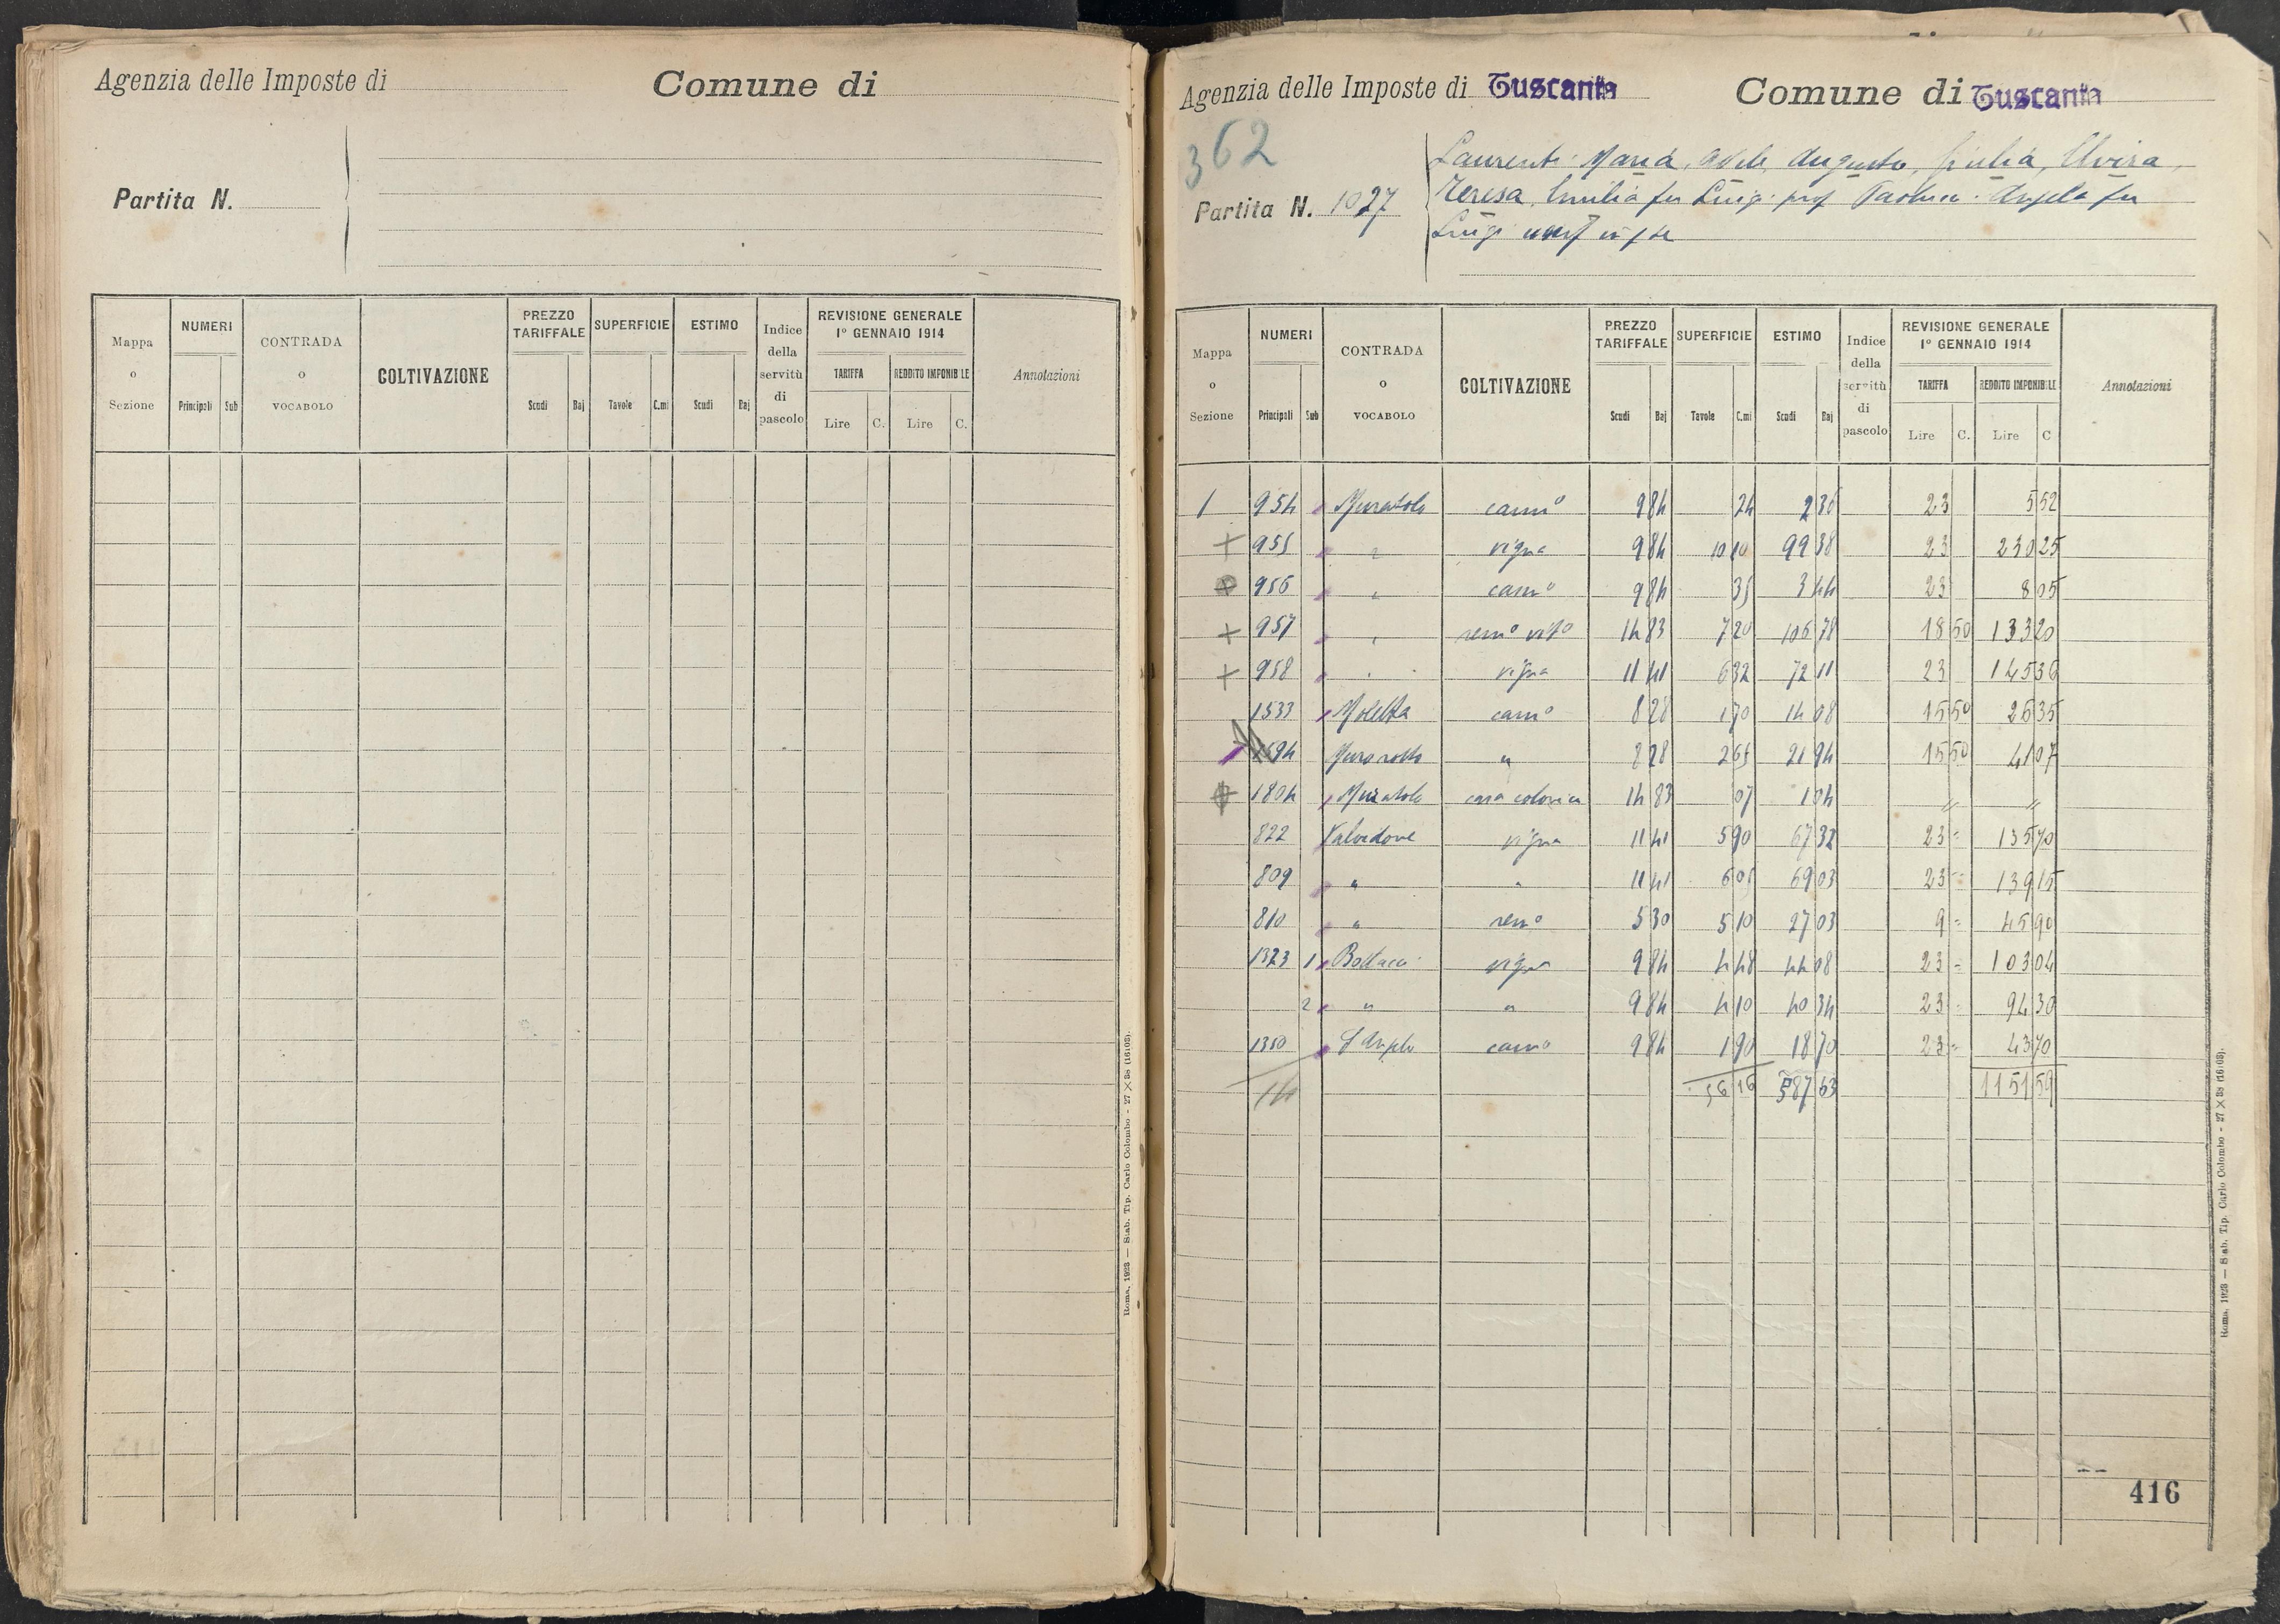 Agenzia delle Imposte di Comune di
Partita N.
Mappa o Sezione NUMERI Principali Sub CONTRADA o VOCABOLO COLTIVAZIONE PREZZO TARIFFALE Scudi Baj SUPERFICIE Tavole C.mi ESTIMO Scudi Baj Indice della servitù di pascolo REVISIONE GENERALE 1° GENNAIO 1914 TARIFFA Lire C. REDDITO IMPONIBILE Lire C. Annotazioni
Roma, 1923 — Stab. Tip. Carlo Colombo - 27 × 38 (16:03).
Agenzia delle Imposte di Tuscania Comune di Tuscania
362
Partita N. 1027
Laurenti Maria, Adele, Augusto, Giulia, Elvira,
Teresa, Emilia fu Luigi prop Angela fu
Luigi
Mappa o Sezione NUMERI Principali Sub CONTRADA o VOCABOLO COLTIVAZIONE PREZZO TARIFFALE Scudi Baj SUPERFICIE Tavole C.mi ESTIMO Scudi Baj Indice della servitù di pascolo REVISIONE GENERALE 1° GENNAIO 1914 TARIFFA Lire C. REDDITO IMPONIBILE Lire C Annotazioni
1 954 Muratola cann° 9 84 24 2 36 23 5 52
955 " vigna 9 84 10 10 99 38 23 230 25
956 " cann° 9 84 35 3 44 23 8 05
957 " sem° vit° 14 83 7 20 106 78 18 50 133 20
958 " vigna 11 41 6 32 72 11 23 145 36
1533 Moletta cann° 8 28 1 70 14 08 15 50 26 35
1694 " 8 28 2 65 21 94 15 50 41 07
1804 Muratola casa colonica 14 83 07 1 04 " "
822 Valvidone vigna 11 41 5 90 67 32 23 = 135 70
809 " " 11 41 6 05 69 03 23 = 139 15
810 " sem° 5 30 5 10 27 03 9 = 45 90
1323 1 vigna 9 84 4 48 44 08 23 = 103 04
2 " " 9 84 4 10 40 34 23 = 94 30
1350 S Angelo cann° 9 84 1 90 18 70 23 = 43 70
14 56 16 587 63 1151 59
416
Roma, 1923 — Stab. Tip. Carlo Colombo - 27 × 38 (16:03).